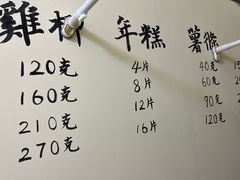 雞柳 年糕 薯條
120克 4片 40克
160克 8片 60克
210克 12片 90克
270克 16片 120克